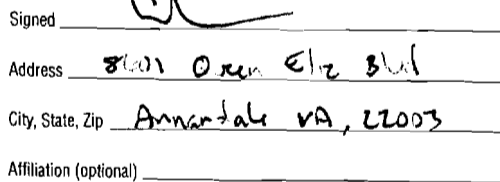 Signed
Address Blvd
City, State, Zip Annandale VA, 22003
Affiliation (optional)